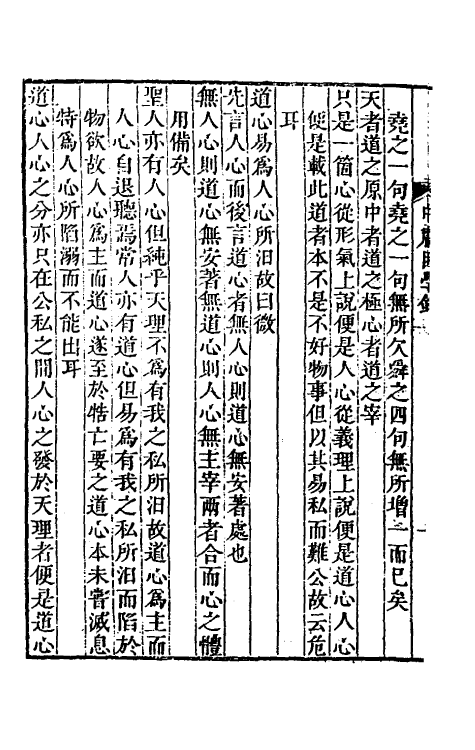 堯之一句堯之一句無所欠舜之四句無所增一而已矣
天者道之原中者道之極心者道之宰
只是一箇心從形氣上說便是人心從義理上說便是道心人心
便是載此道者本不是不好物事但以其易私而難公故云危
耳
道心易爲人心所汨故曰微
先言人心而後言道心者無人心則道心無安著處也
無人心則道心無安著無道心則人心無主宰兩者合而心之體
用備矣
聖人亦有人心但純乎天理不爲有我之私所汨故道心爲主而
人心自退聽焉常人亦有道心但易爲有我之私所汨而陷於
物欲故人心爲主而道心遂至於牿亡要之道心本未嘗滅息
特爲人心所陷溺而不能出耳
道心人心之分亦只在公私之間人心之發於天理者便是道心